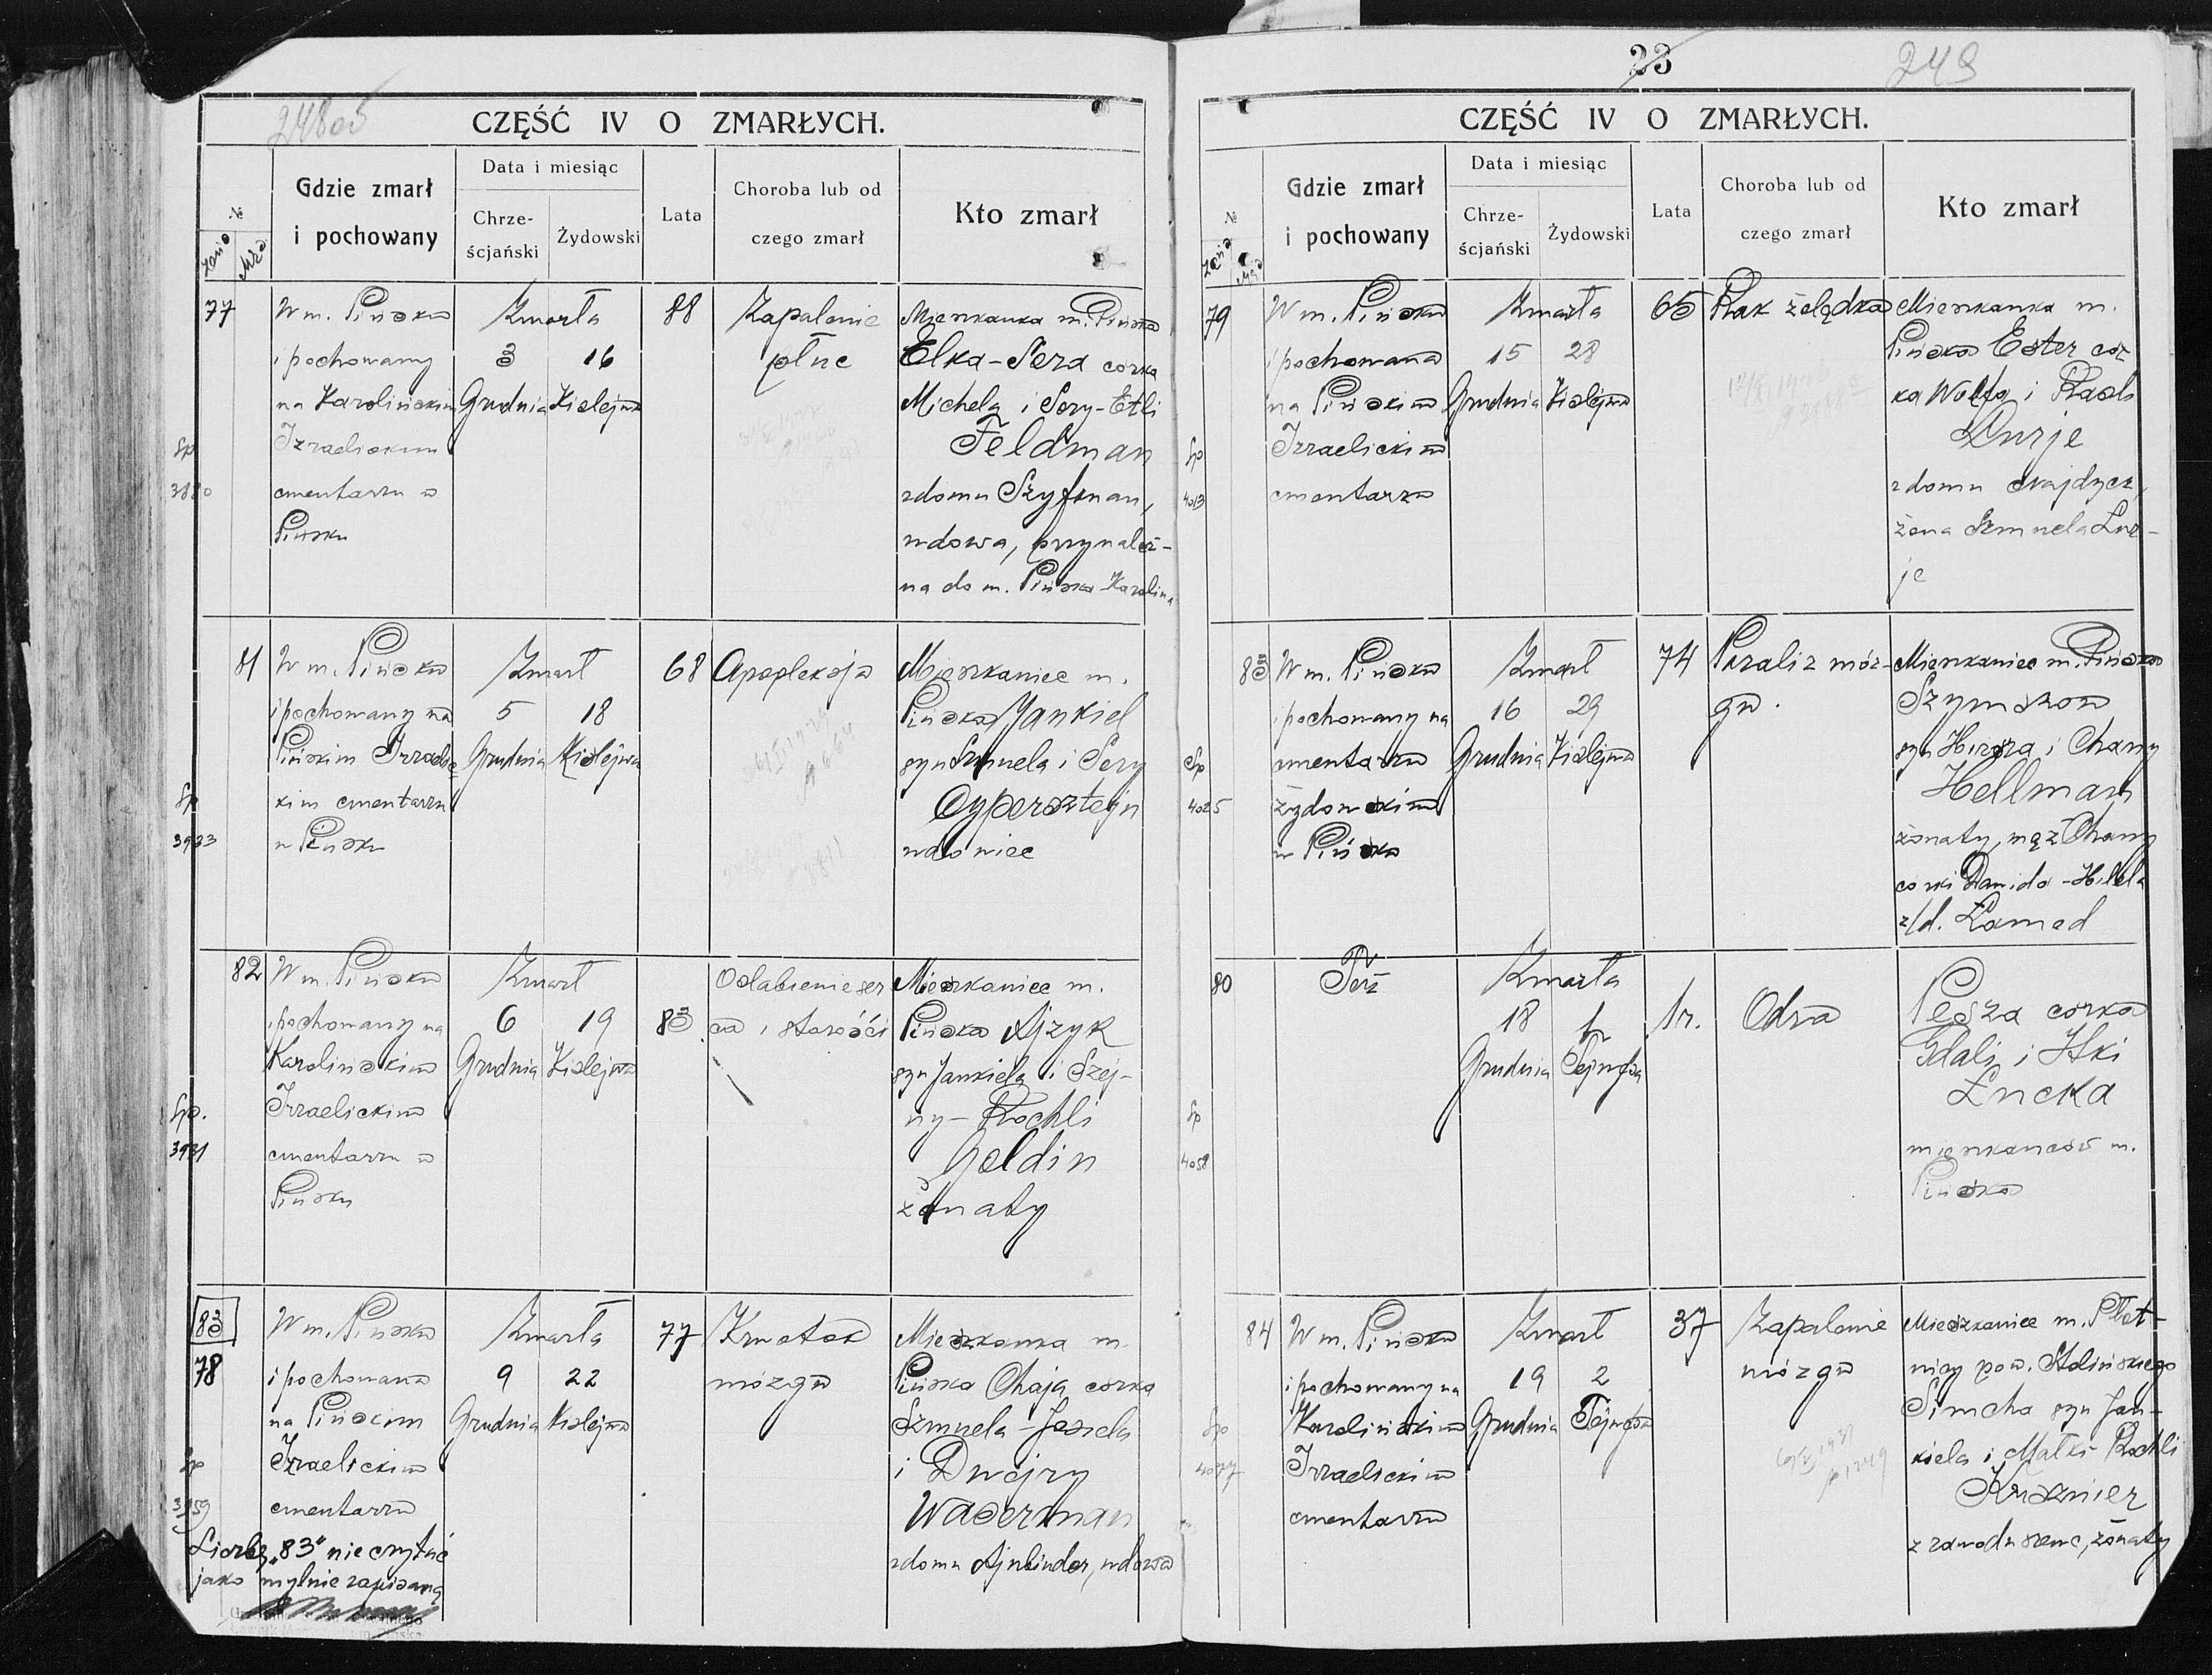 248
CZĘŚĆ IV O ZMARŁYCH.
№
żeńs
Męs
Gdzie zmarł
i pochowany
Data i miesiąc
Chrze-
ścjański
Żydowski
Lata
Choroba lub od
czego zmarł
Kto zmarł
77
Sp
3880
W m. Pińsku
i pochowany
na Karolińskim
Izraelickim
cmentarzu w
Pińsku
Zmarła
3 16
Grudnia Kislejwa
88
Zapalenie
płuc
Mieszkanka m. Pińska
Elka-Sera corka
Michela i Sory-Etli
Feldman
z domu Szyfman,
wdowa, przynależ-
na do m. Pińska-Karolina
81
Sp
3933
W m. Pińsku
i pochowany na
Pińskim Izraelic
kim cmentarzu
w Pińsku
Zmarł
5 18
Grudnia Kislejwa
68
Apopleksja
Mieszkaniec m.
Pińska Jankiel
syn Szmuela i Sory
Cypersztejn
wdowiec
82
Sp.
3931
W m. Pińsku
i pochowany na
Karolińskim
Izraelickim
cmentarzu w
Pińsku
Zmarł
6 19
Grudnia Kislejwa
83
Osłabienie ser
ca i starości
Mieszkaniec m.
Pińska Ajzyk
syn Jankiela i Szej-
ny-Rochli
Goldin
żonaty
83
78
Sp
3959
W m. Pińsku
i pochowana
na Pińskim
Izraelickim
cmentarzu
Zmarła
9 22
Grudnia Kislejwa
77
Krwotok
mózgu
Mieszkanka m.
Pińska Chaja corka
Szmuela-Josiela
i Dwejry
Waserman
z domu Ajnbinder, wdowa
Liczbę „83" nie czytać
jako mylnie zapisaną
23
249
CZĘŚĆ IV O ZMARŁYCH.
№
żeńs
Męs
Gdzie zmarł
i pochowany
Data i miesiąc
Chrze-
ścjański
Żydowski
Lata
Choroba lub od
czego zmarł
Kto zmarł
79
Sp
4013
W m. Pińsku
i pochowana
na Pińskim
Izraelickim
cmentarzu
Zmarła
15 28
Grudnia Kislejwa
65
Rak żelądka
Mieszkanka m.
Pińska Ester cor
ka Wolfa i
Lurje
z domu
żona Szmuela Lur-
je
83
Sp
4025
W m. Pińsku
i pochowany na
cmentarzu
żydowskim
w Pińsku
Zmarł
16 29
Grudnia Kislejwa
74
Paraliz móz-
gu.
Mieszkaniec m. Pińska
Szymszon
syn Hirsza i Chany
Hellman
żonaty, mąż Chany
corki Dawida-Hilela
z/d. Łamed
80
Sp
4058
Zmarła
18 1
Grudnia Tejwfsa
1 r.
Odra
Pesza corka
Gdali i Itki
Łucka
mieszkańców m.
Pińska
84
Sp
4077
W m. Pińsku
i pochowany na
Karolińskim
Izraelickim
cmentarzu
Zmarł
19 2
Grudnia Tejwfsa
37
Zapalenie
mózgu
Mieszkaniec m. Płot-
nicy pow. Stolińskiego
Simcha syn Jan-
kiela i Matki Rochli
Kusznier
z zawodu szewc, żonaty